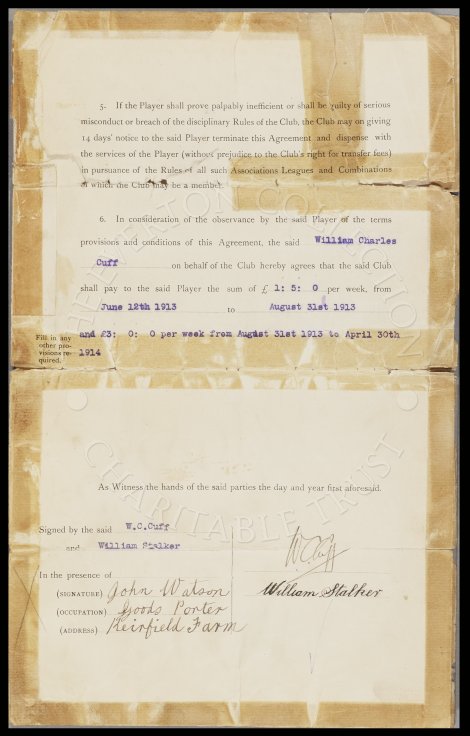 5. If the Player shall prove palpably inefficient or shall be guilty of serious
misconduct or breach of the disciplinary Rules of the Club, the Club may on giving
14 days' notice to the said Player terminate this Agreement and dispense with
the services of the Player (without prejudice to the Club's right for transfer fees)
in pursuance of the Rules of all such Associations Leagues and Combinations
of which the Club may be a member.
6. In consideration of the observance by the said Player of the terms
provisions and conditions of this Agreement, the said William Charles
Cuff on behalf of the Club hereby agrees that the said Club
shall pay to the said Player the sum of £ 1: 5: 0 per week, from
June 12th 1913 to August 31st 1913
and £3: 0: 0 per week from August 31st 1913 to April 30th
1914
Fill in any
other pro-
visions re-
quired.
THE EVERTON COLLECTION
CHARITABLE TRUST
As Witness the hands of the said parties the day and year first aforesaid.
Signed by the said W.C.Cuff
and William Stalker
W.C. Cuff
William Stalker
In the presence of
(SIGNATURE) John Watson
(OCCUPATION) Goods Porter
(ADDRESS) Keirfield Farm